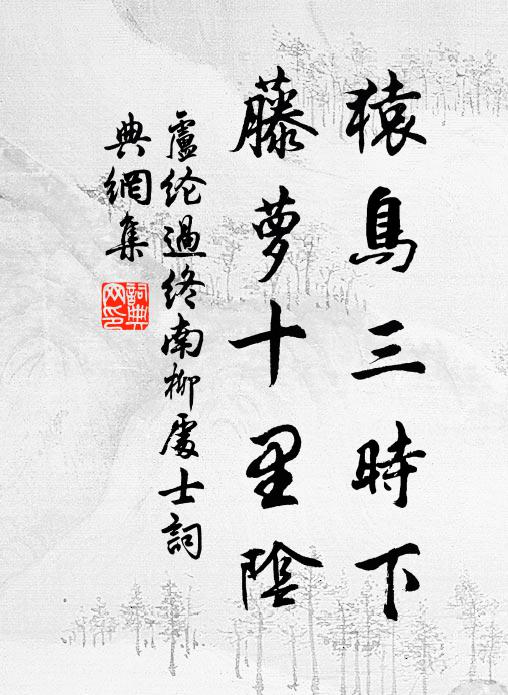 猿鳥三時下
藤蘿十里陰
盧纶過終南柳處士詞
典網集
詞典網印